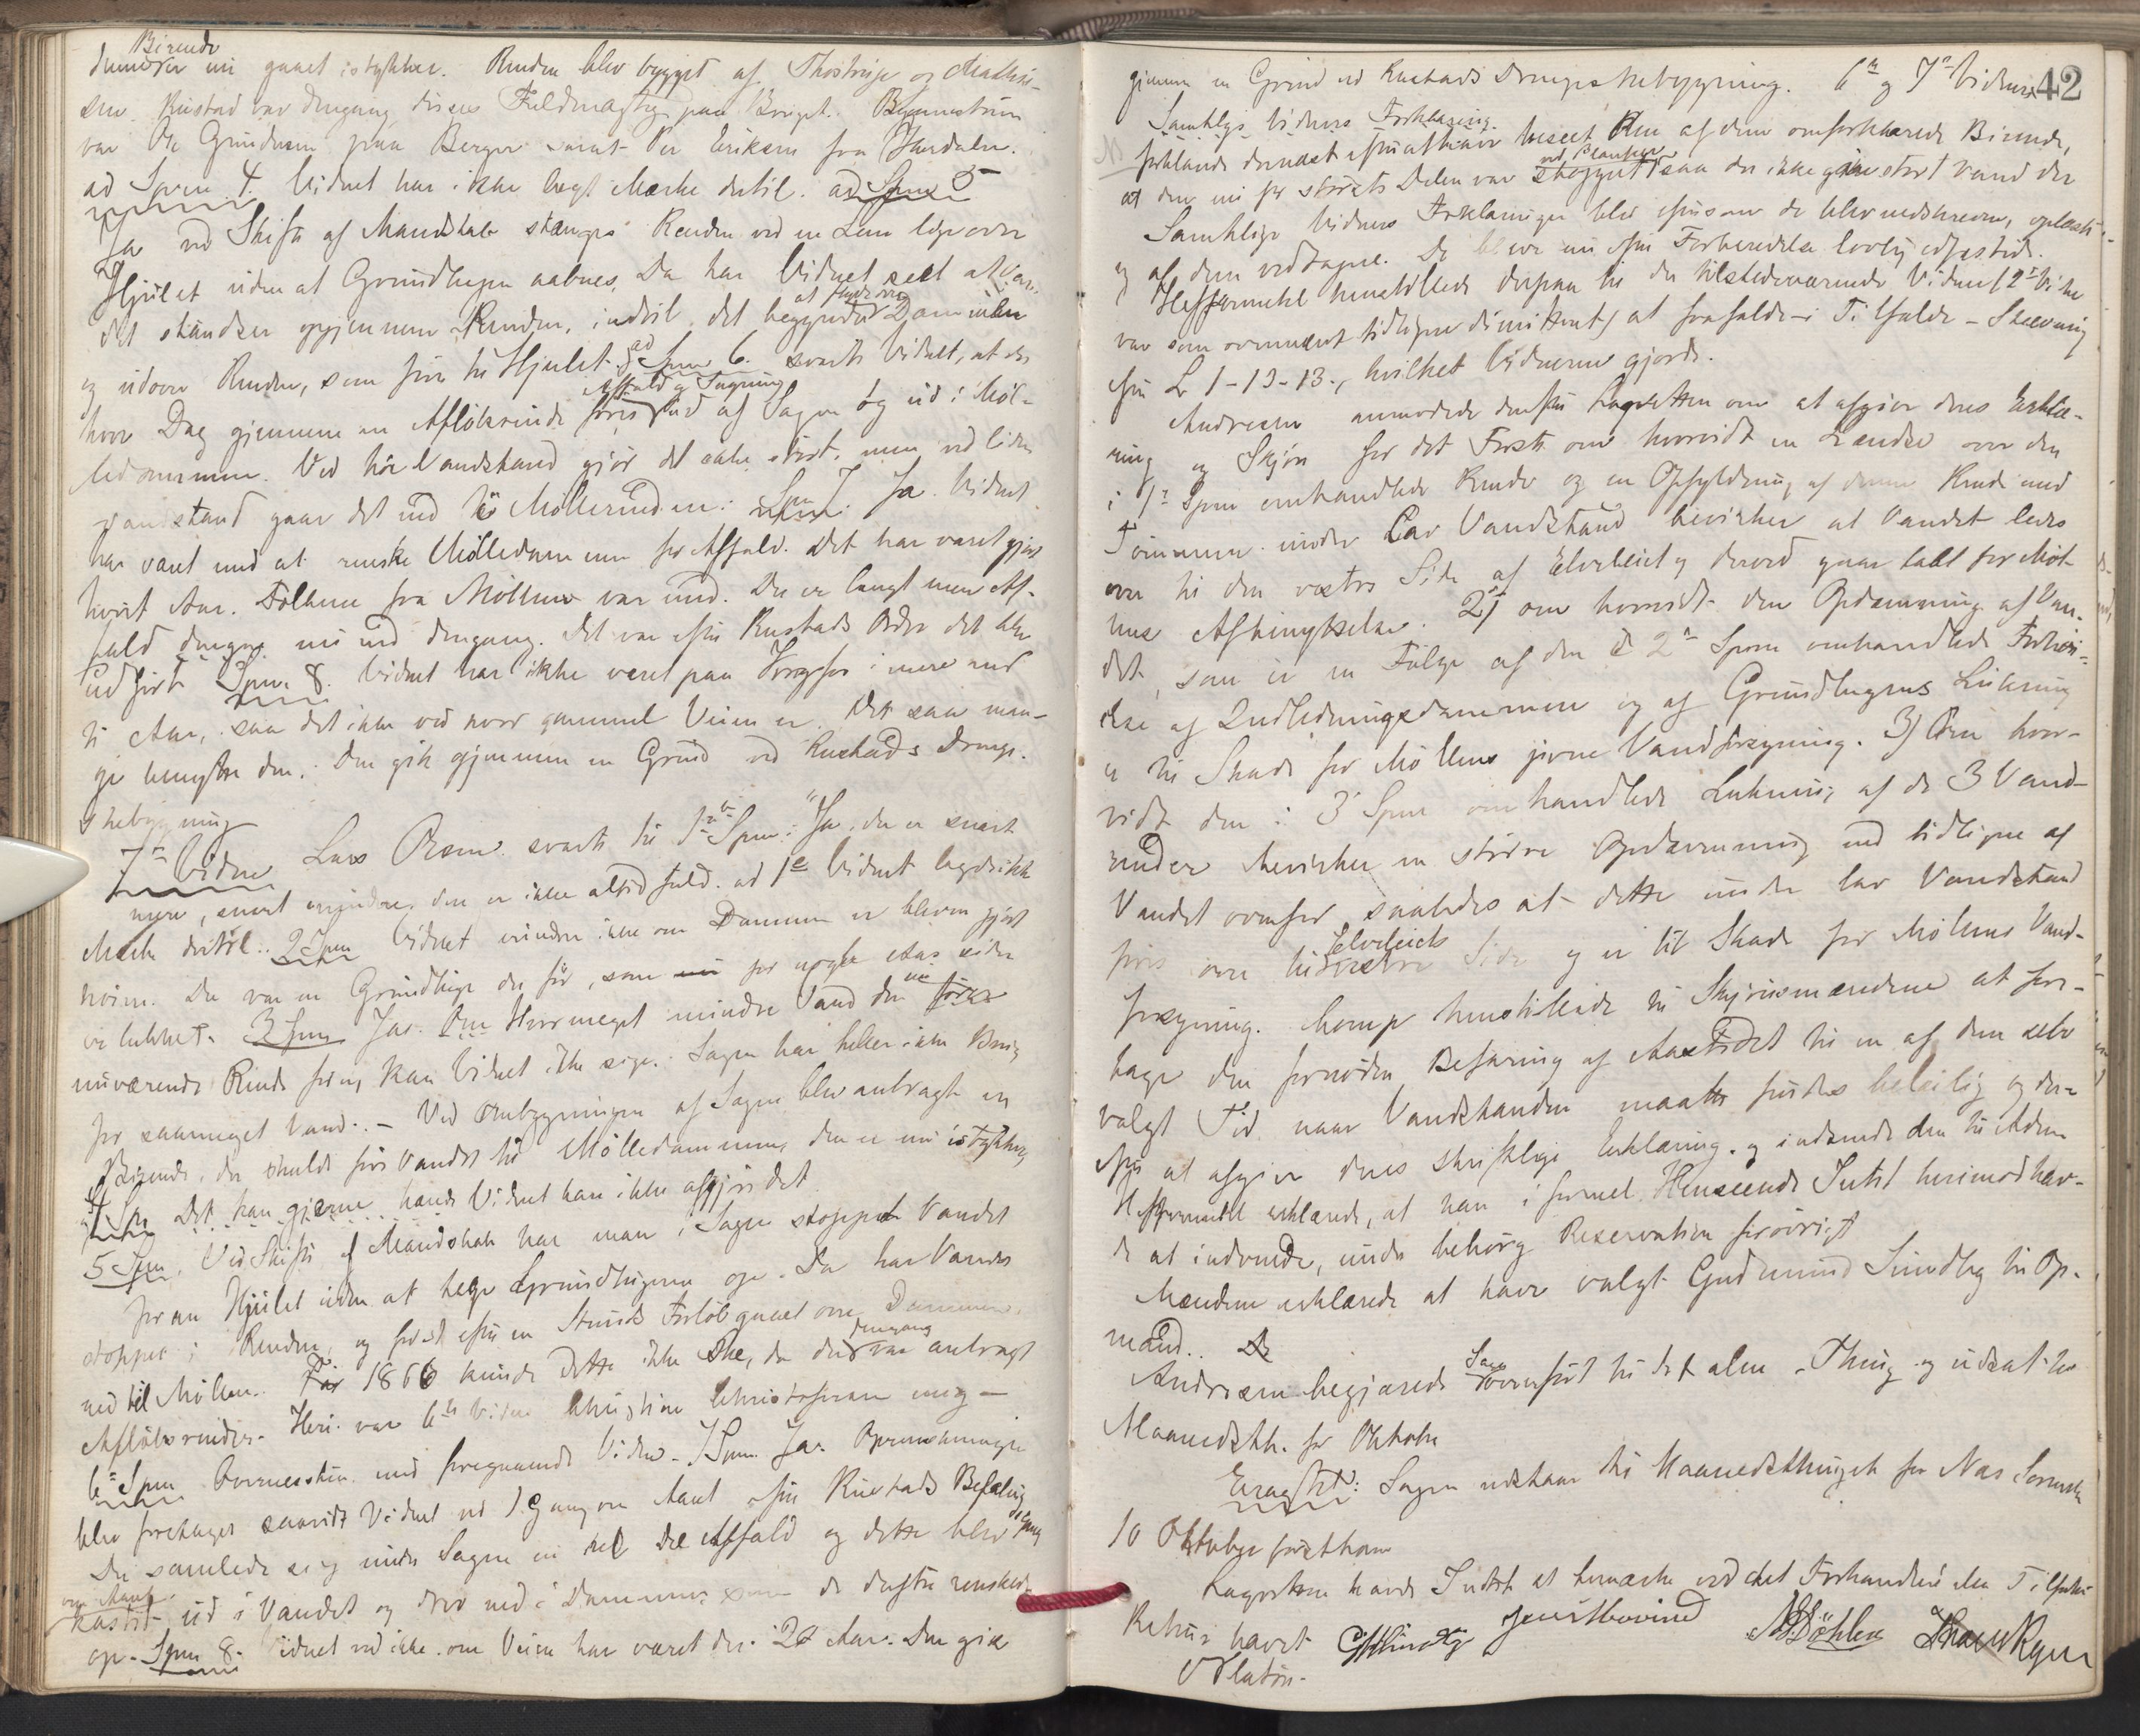 Birende
er nu gaaet istykker. Renden blev bygget af Thostrup og Mathie-
sen. Rustad var dengang disses Fuldmægtig paa Bruget. Bygmesteren
var Ole Grundesen paa Berger samt Per Eriksen fra Hurdalen.
ad Spm 4. Vidnet har ikke lagt Mærke dertil. ad Spm 5
Ja ved Skifte af Mandskab stænges Renden ved en Lem lige over
Hjulet uden at Grundlugen aabnes. Da har Vidnet seet at Van-
det standser op gjennem Renden, indtil det begynder at flyde over Dammen
og udover Renden, som fører til Hjulet. ad Spm 6. svarte Vidnet, at der
hver Dag gjennem en Afløbsrende føres Affald og Sagmug ud af Sagen og ud i Møl-
ledammen. Ved høi Vandstand gjør det ikke stort, men ved liden
vandstand gaar det ned til Møllerenden. Spm 7. Ja. Vidnet
har været med at renske Mølledammen for Affald. Det har været gjort
hvert Aar. Folkene fra Møllen var med. Der er langt mere Af-
fald nu end dengang. Det var efter Rustads Ordre det blev
udført. Spm. 8. Vidnet har ikke været paa i mere end
ti Aar, saa det ikke ved hvor gammel Veien er. Det saa man-
ge benytte den. Den gik gjennem en Grind ved Rustads Drengs-
stubygning
7de Vidne Lars Olsen svarte til 1ste Spm: "Ja, der er snart
mere, snart mindre, den er ikke altid fuld. ad 1ste Vidnet lagde ikke
Mærke dertil. 2 Spm Vidnet erindrer ikke om Dammen er bleven gjort
høiere. Der var en Grundluge der før, som for nogle Aar siden
er lukket. 3 Spm Ja. Hvormeget mindre Vand den
nuværende Rende fører, kan Vidnet ikke sige. Sagen har heller ikke Brug
for saameget Vand. - Ved Ombygningen af Sagen blev anbragt en
Birende, der skulde føre Vandet til Mølledammen, den er nu istykker,
4 Spm Det kan gjerne hænde Vidnet kan ikke afgjøre det
5 Spm. Ved Skifte af Mandskab har man i Sagen stoppet Vandet
foran Hjulet uden at hæve Grundlugerne op. Da har Vandet
stoppet i Renden, og først efter en Stunds Forløb gaaet over Dammen
ned til Møllen. Før 1866 kunde dette ikke ske, da der dengang var anbragt
Afløbsrender. Heri var 6te Vidne Christian Christofersen enig -
6te Spm Overensstem. med foregaaende Vidne. 7 Spm. Ja. Oprenskningen
blev foretaget saavidt Vidnet ved 1 Gang om Aaret efter Rustads Befaling
Der samlede sig under Sagen en hel Del Affald og dette blev
om Aaret kastet ud i Vandet og drev ned i Dammen som de derefter renskede
op. Spm 8. Vidnet ved ikke om Veien har været der i 20 Aar. Den gik
42
gjennem en Grind ved Rustads Drengestubygning. 6te og 7de Vidners
Samtlige Vidners Forklaring.
forklarede dernæst efter at have beseet Ren af den omforklarede Birende,
at den nu for største Delen var stoppet ved Planker saa der ikke gik stort Vand der
Samtlige Vidners Forklaringer blev eftersom de blev nedskrevne, oplæste
og af dem vedtagne. De blev nu efter Forberedelse lovlig edfæstede.
Heffermehl henstillede derpaa til de tilstedeværende Vidner (2det Vidne
var som ovennævnt tidligere dimitteret) at frafalde i Tilfælde - Stævning
efter L 1-13-13., hvilket Vidnerne gjorde.
Andresen anmodede derefter Lagretten om at afgive deres Erklæ-
ring og Skjøn for det Første om hvorvidt en Lændse over den
i 1ste Spm omhandlede Rende og en Opfyldning af denne Rende med
Tømmer under lav Vandstand bevirker at Vandet ledes
over til den vestre Side af Elveleiet og derved gaar tabt for Møl-
lens Afbenyttelse. 2) om hvorvidt den Opdæmning af Van-
det, som er en Følge af den i 2det Spm omhandlede Forhøi-
else af Indledningsdammen og af Grundlugens Lukning
er til Skade for Møllens jevne Vandforsyning. 3) Om hvor-
vidt den i 3die Spm omhandlede Lukning af de 3 Vand-
render bevirker en større Opdæmning end tidligere af
Vandet ovenfor saaledes at dette under lav Vandstand
føres over til Elveleiets vestre Side og er til Skade for Møllens Vand-
forsyning. Komp henstillede til Skjønsmændene at fore-
tage den fornødne Befaring af Aastedet til en af dem selv
valgt Tid naar Vandstanden maatte findes beleilig og der-
efter at afgive deres skriftlige Erklæring og indsende den til Adm
Heffermehl erklærede, at han i formel Henseende Intet herimod hav-
de at indvende, under behørig Reservation forøvrigt
Mændene erklærede at have valgt Gudmund Sundby til Op-
mand.
Andresen begjærede Sagen overført til det alm. Thing og udsat til
Maanedsth. for Oktober
Eragtet: Sagen udstaar til Maanedsthinget for Næs Sorensk
10 Oktober førstkom
Lagretten havde Intet at bemærke ved det Forhandlede eller Tilførte
Retten hævet